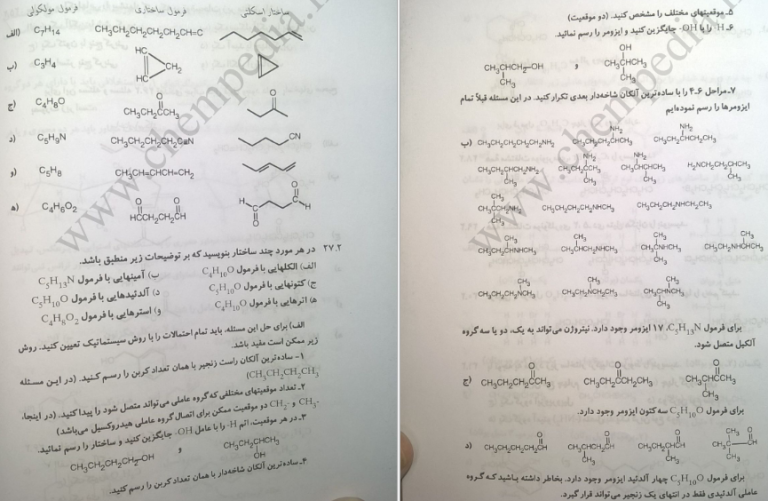 فرمول مولکولی فرمول ساختاری ساختار اسکلتی
الف) C7H14 CH3CH2CH2CH2CH2CH=C
ب) C3H4 HC HC CH2
ج) C4H8O CH3CH2CCH3 O O
د) C5H9N CH3CH2CH2CH2C≡N CN
و) C5H8 CH3CH=CHCH=CH2
ه) C4H6O2 HCCH2CH2CH O O O H C C H O
۲۷.۲ در هر مورد چند ساختار بنویسید که بر توضیحات زیر منطبق باشد.
الف) الکلهایی با فرمول C4H10O ب) آمینهایی با فرمول C5H13N
ج) کتونهایی با فرمول C5H10O د) آلدئیدهایی با فرمول C5H10O
ه) اترهایی با فرمول C4H10O و) استرهایی با فرمول C4H8O2
الف) برای حل این مسئله، باید تمام احتمالات را با روش سیستماتیک تعیین کنید. روش
زیر ممکن است مفید باشد.
۱- ساده‌ترین آلکان راست زنجیر با همان تعداد کربن را رسم کنید. (در این مسئله
CH3CH2CH2CH3)
۲ـ تعداد موقعیتهای مختلفی که گروه عاملی می‌تواند متصل شود را پیدا کنید. (در اینجا،
CH3- و CH2- دو موقعیت ممکن برای اتصال گروه عاملی هیدروکسیل می‌باشد)
۳ـ در هر موقعیت، اتم H- را با عامل OH- جایگزین کنید و ساختار را رسم نمائید.
CH3CH2CH2CH2—OH و CH3CH2CHCH3 OH
۴ـ ساده‌ترین آلکان شاخه‌دار با همان تعداد کربن را رسم کنید.
۵ـ موقعیتهای مختلف را مشخص کنید. (دو موقعیت)
۶ـ H- را با OH- جایگزین کنید و ایزومر را رسم نمائید.
CH3CHCH2—OH CH3 و OH CH3CHCH3 CH3
۷ـ مراحل ۴ـ۶ را با ساده‌ترین آلکان شاخه‌دار بعدی تکرار کنید. در این مسئله قبلاً تمام
ایزومرها را رسم نموده‌ایم
ب) CH3CH2CH2CH2CH2NH2 NH2 CH3CH2CH2CHCH3 NH2 CH3CH2CHCH2CH3
CH3CH2CHCH2NH2 CH3 NH2 CH3CH2CCH3 CH3 NH2 CH3CHCHCH3 CH3 H2NCH2CH2CHCH3 CH3
CH3 CH3CCH2NH2 CH3 CH3CH2CH2CH2NHCH3 CH3CH2CH2NHCH2CH3
CH3 CH3CH2CHNHCH3 CH3 CH3CHCH2NHCH3 CH3 CH3CNHCH3 CH3 CH3 CH3CH2NHCHCH3
CH3 CH3CH2CH2NCH3 CH3 CH3CH2NCH2CH3 CH3 CH3 CH3CHNCH3
برای فرمول C5H13N، ۱۷ ایزومر وجود دارد. نیتروژن می‌تواند به یک، دو یا سه گروه
آلکیل متصل شود.
ج) O CH3CH2CH2CCH3 O CH3CH2CCH2CH3 O CH3CHCCH3 CH3
برای فرمول C5H10O سه کتون ایزومر وجود دارد.
د) O CH3CH2CH2CH2CH O CH3CH2CHCH CH3 O CH3CHCH2CH CH3 CH3 O CH3C—CH CH3
برای فرمول C5H10O چهار آلدئید ایزومر وجود دارد. بخاطر داشته باشید که گروه
عاملی آلدئیدی فقط در انتهای یک زنجیر می‌تواند قرار گیرد.
www.chempedia.ir
www.chempedia